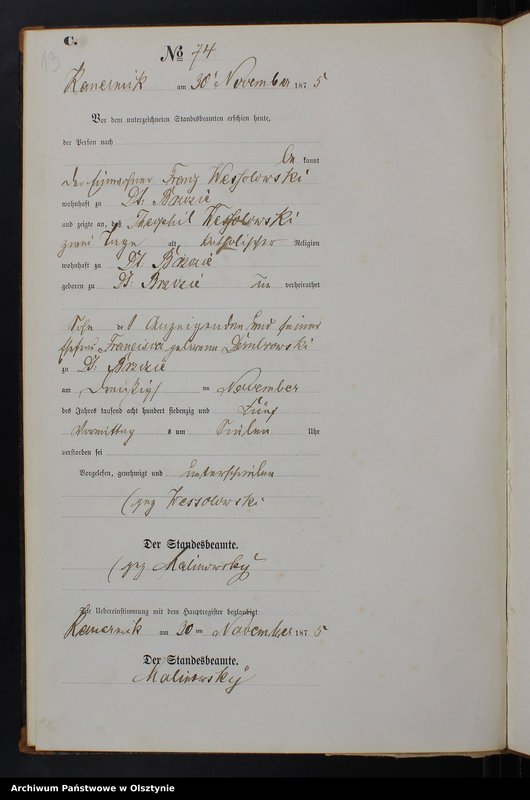 C.
13
No 74
am 30t November 1875
Vor dem unterzeichneten Standesbeamten erschien heute,
der Person nach
be kannt
der Einwohner Franz Wessolowski
wohnhaft zu Dt: Brzozie
und zeigte an, daß Theophil Wessolowski
zwei Tage alt, katholischer Religion
wohnhaft zu Dt: Brzozie
geboren zu Dt: Brzozie nie verheirathet
Sohn des Anzeigenden und seiner
Ehefrau Francisca geborenen Dembrowski
zu Dt: Brzozie
am Dreißigsten November
des Jahres tausend acht hundert siebenzig und fünf
Vormittags um sieben Uhr
verstorben sei
Vorgelesen, genehmigt und unterschrieben
(gez Wessolowski
Der Standesbeamte.
(gez Malinowsky
Die Uebereinstimmung mit dem Hauptregister beglaubigt
am 30 ten November 1875
Der Standesbeamte.
Malinowsky
Archiwum Państwowe w Olsztynie